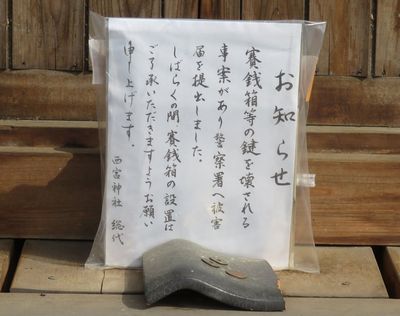 お知らせ
賽銭箱等の鍵を壊される
事案があり警察署へ被害
届を提出しました。
しばらくの間賽銭箱の設置は
ご了承いただきますようお願い
申し上げます。
西宮神社 総代